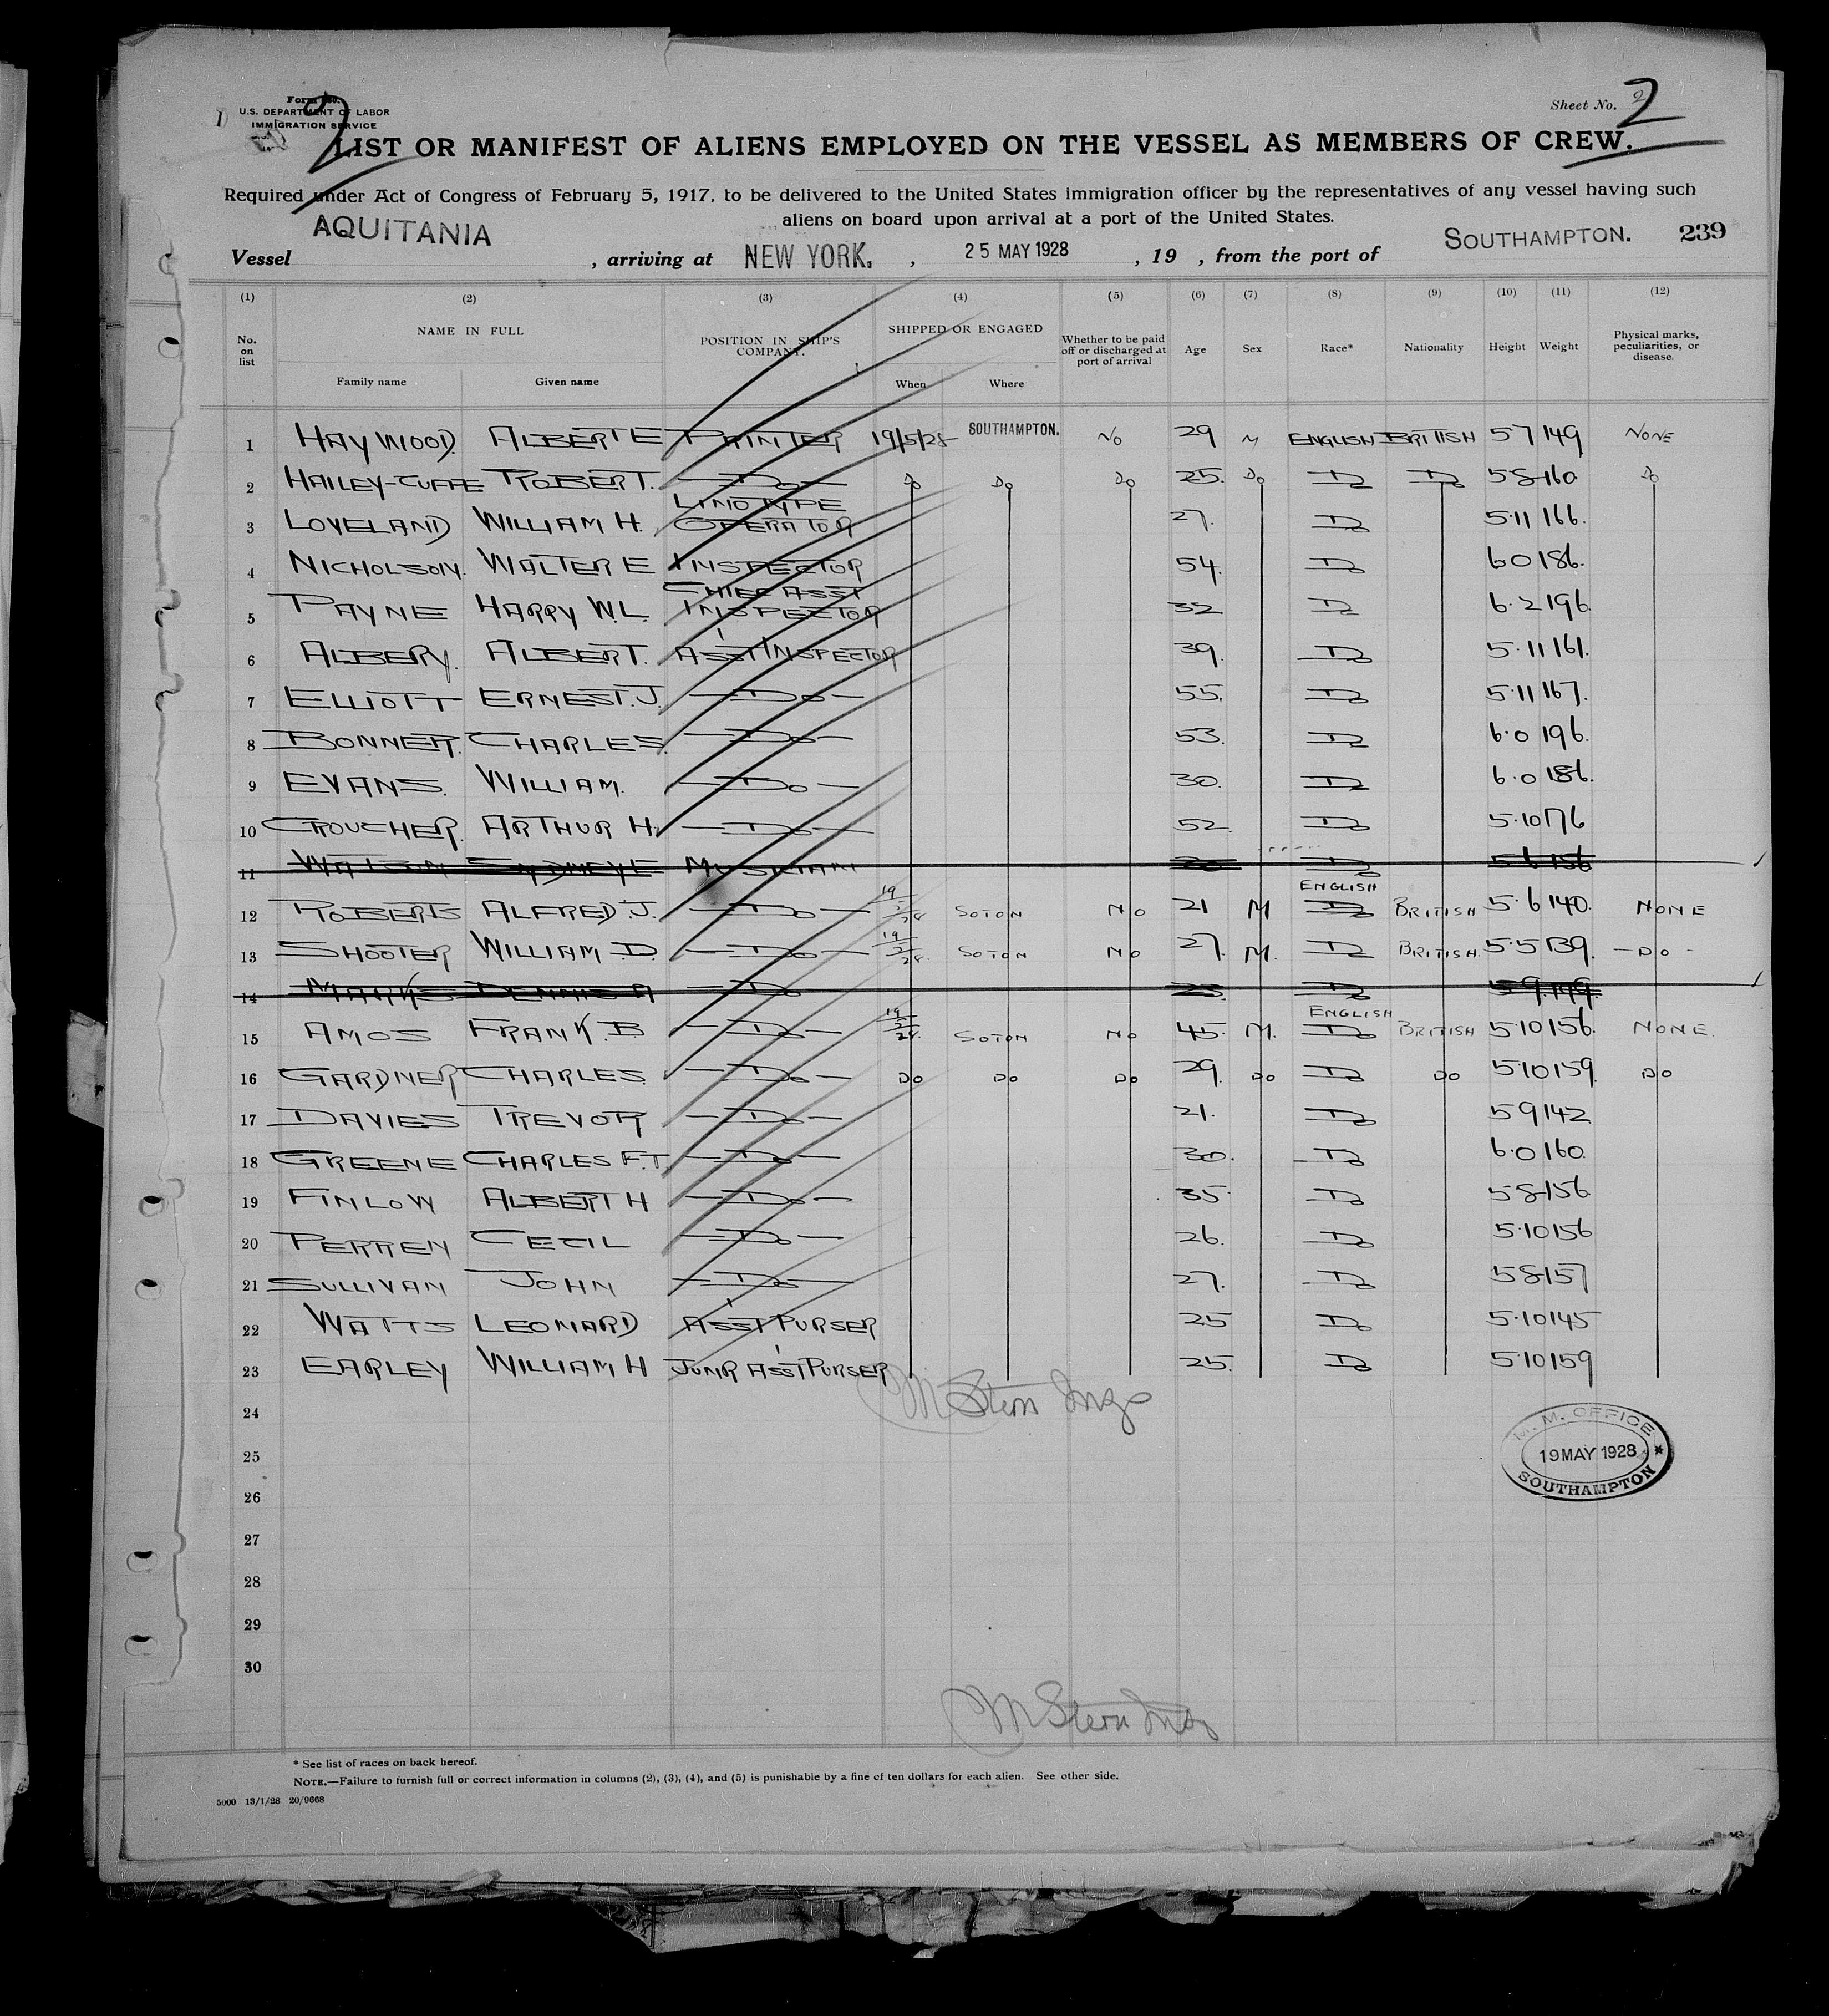 Form 680.
U.S. DEPARTMENT OF LABOR
IMMIGRATION SERVICE
2
Sheet No. 2
LIST OR MANIFEST OF ALIENS EMPLOYED ON THE VESSEL AS MEMBERS OF CREW.
Required under Act of Congress of February 5, 1917, to be delivered to the United States immigration officer by the representatives of any vessel having such
aliens on board upon arrival at a port of the United States.
Vessel AQUITANIA, arriving at NEW YORK., 25 MAY 1928, 19 , from the port of SOUTHAMPTON. 239
(1) (2) (3) (4) (5) (6) (7) (8) (9) (10) (11) (12)
No. on list NAME IN FULL Family name Given name POSITION IN SHIP'S COMPANY. SHIPPED OR ENGAGED When Where Whether to be paid off or discharged at port of arrival Age Sex Race* Nationality Height Weight Physical marks, peculiarities, or disease.
1 HAYWOOD. ALBERT E PAINTER 19/5/28 SOUTHAMPTON. NO 29 M ENGLISH BRITISH 5 7 149 NONE
2 HAILEY-CUFFE ROBERT. —Do— Do Do Do 25. Do Do Do 5 8 160 Do
3 LOVELAND WILLIAM H. LINOTYPE OPERATOR 27. Do 5·11 166.
4 NICHOLSON. WALTER E INSPECTOR 54. Do 6 0 186.
5 PAYNE HARRY W.L. CHIEF ASST INSPECTOR 32 Do 6·2 196.
6 ALBERY. ALBERT. ASST INSPECTOR 39. Do 5·11 161.
7 ELLIOTT ERNEST. J. —Do— 55. Do 5·11 167.
8 BONNER. CHARLES. —Do— 53. Do 6·0 196.
9 EVANS. WILLIAM. —Do— 30. Do 6·0 186.
10 CROUCHER. ARTHUR H. —Do— 52. Do 5·10 176
11 WATSON SYDNEY E MUSICIAN Do 5 6 156
12 ROBERTS ALFRED. J. —Do— 19/5/28 SOTON NO 21 M ENGLISH Do BRITISH 5·6 140. NONE
13 SHOOTER WILLIAM. D. —Do— 19/5/28. SOTON NO 27. M. Do BRITISH. 5·5 139. —DO-
14 MARKS DENNIS A —Do Do 5 9. 149.
15 AMOS FRANK. B —Do— 19/5/28. SOTON NO 45. M. ENGLISH Do BRITISH 5·10 156. NONE.
16 GARDNER CHARLES. —Do— DO DO DO 29. DO Do DO 5·10 159. DO
17 DAVIES TREVOR —Do— 21. Do 5 9 142
18 GREENE CHARLES F.T. —Do— 30. Do 6·0 160.
19 FINLOW ALBERT H —Do— 35. Do 5 8 156.
20 PERREN CECIL —Do— 26. Do 5·10 156
21 SULLIVAN JOHN —Do— 27. Do 5 8 157
22 WATTS LEONARD ASST PURSER 25 Do 5·10 145
23 EARLEY WILLIAM H JUNR ASST PURSER 25. Do 5·10 159
M Stern Insp
24
25
26
27
28
29
30
M.M. OFFICE
19 MAY 1928
SOUTHAMPTON
M Stern Insp
* See list of races on back hereof.
NOTE.—Failure to furnish full or correct information in columns (2), (3), (4), and (5) is punishable by a fine of ten dollars for each alien. See other side.
5000 13/1/28 20/9668